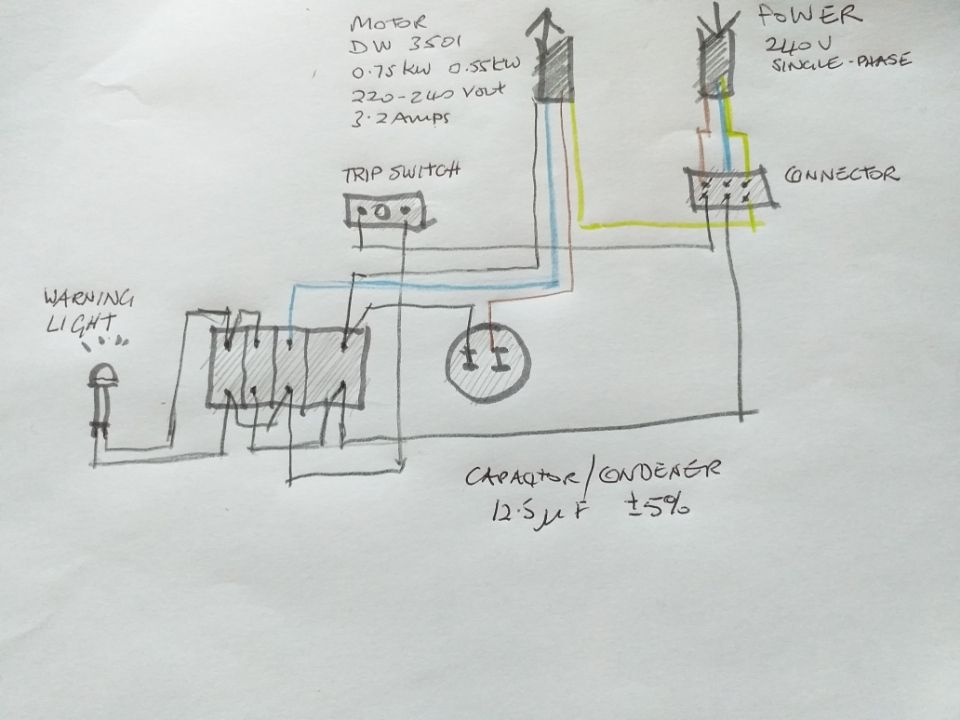 MOTOR
DW 3501
0.75 KW 0.55KW
220-240 VOLT
3.2 AMPS
POWER
240V
SINGLE-PHASE
TRIP SWITCH
CONNECTOR
WARNING
LIGHT
CAPACITOR/CONDENER
12.5 µF ±5%